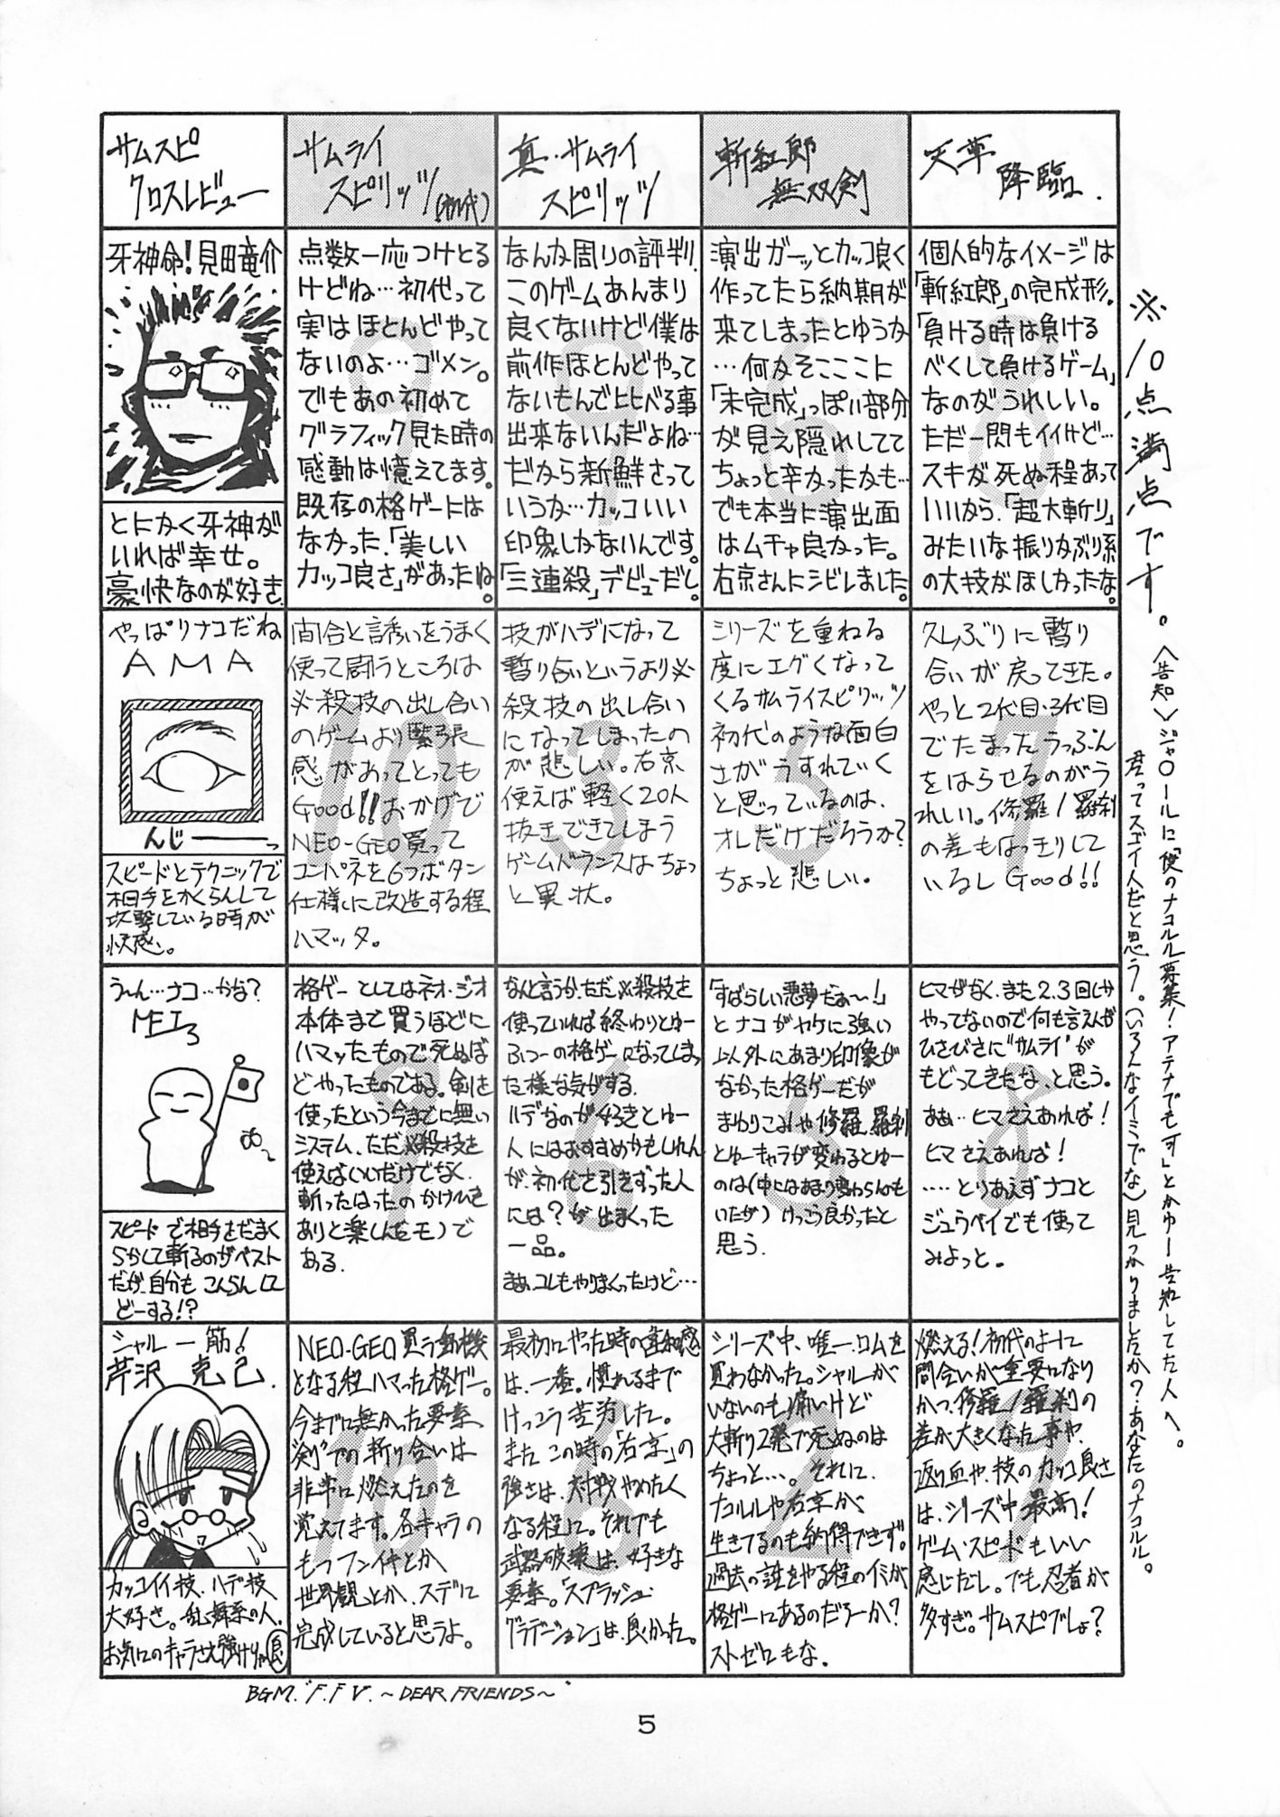 サムスピ
クロスレビュー
サムライ
スピリッツ(初代)
真・サムライ
スピリッツ
斬紅郎
無双剣
天草
降臨
牙神命!見田竜介
とにかく牙神が
いれば幸せ。
豪快なのが好き
点数一応つけとる
けどね…初代って
実はほとんどやって
ないのよ…ゴメン。
でもあの初めて
グラフィック見た時の
感動は憶えてます。
既存の格ゲーには
なかった、「美しい
カッコ良さ」があったね。
9
なんか周りの評判、
このゲームあんまり
良くないけど僕は
前作ほとんどやって
ないもんで比べる事
出来ないんだよね…
だから新鮮さって
いうか…カッコいい
印象しかないんです。
「三連殺」デビューだし。
9
演出ガーッとカッコ良く
作ってたら納期が
来てしまったとゆうか
…何かそこここに
「未完成」っぽい部分
が見え隠れしてて
ちょっと辛かったかも…
でも本当に演出面
はムチャ良かった。
右京さんにシビレました。
6
個人的なイメージは
「斬紅郎」の完成形。
「負ける時は負ける
べくして負けるゲーム」
なのがうれしい。
ただ一閃もイイけど…
スキが死ぬ程あって
いいから、「超大斬り」
みたいな振りかぶり系
の大技がほしかったな。
8
やっぱりナコだね
AMA
んじーーっ
スピードとテクニックで
相手をかくらんして
攻撃している時が
快感。
間合と誘いをうまく
使って闘うところは
必殺技の出し合い
のゲームより緊張
感があってとっても
Good!!おかげで
NEO-GEO買って
コンパネを6つボタン
仕様に改造する程
ハマッタ。
10
技がハデになって
斬り合いというより必
殺技の出し合い
になってしまったの
が悲しい。右京
使えば軽く20人
抜きできてしまう
ゲームバランスはちょっ
と異状。
3
シリーズを重ねる
度にエグくなって
くるサムライスピリッツ
初代のような面白
さがうすれていく
と思っているのは、
オレだけだろうか?
ちょっと悲しい。
5
久しぶりに斬り
合いが戻ってきた。
やっと2代目・3代目
でたまったうっぷん
をはらせるのがう
れしい。修羅/羅刹
の差もはっきりして
いるしGood!!
7
う〜ん…ナコ…かな?
MEI
スピードで相手をだまく
らかして斬るのがベスト
だが、自分もこんらん
どーする!?
格ゲーとしてはネオ・ジオ
本体まで買うほどに
ハマったもので死ぬほ
どやったものである。剣を
使ったという今までに無い
システム、ただ必殺技を
使えばいいだけでなく、
斬ったはったのかけひきも
ありと楽しんだモノで
ある。
9
なんと言うか、ただ必殺技を
使っていれば終わりとゆー
ふつーの格ゲーになってしまっ
た様な気がする。
ハデなのが好きとゆー
人にはおすすめかもしれん
が、初代を引きずった人
には?が出まくった
一品。
まぁ、コレもやりまくったけど…
6
「すばらしい悪夢だぁ〜!」
とナコがヤケに強い
以外にあまり印象が
なかった格ゲーだが
まわりこみや修羅、羅刹
とゆーキャラが変わるとゆー
のは(中にはあまり変わらんのも
いたが)けっこう良かったと
思う。
5
ヒマがなく、また2.3回しか
やってないので何も言えんが
ひさびさに“サムライ”が
もどってきたな、と思う。
あぁ…ヒマさえあれば!
ヒマさえあれば!
……とりあえずナコと
ジュウベイでも使って
みよっと。
8
シャルー筋!
芹沢 克己.
カッコイイ技、ハデ技
大好き。乱舞系の人。
お気に入りのキャラさえ強けりゃ良し
NEO-GEO買う動機
となる程ハマった格ゲー。
今までに無かった要素、
“剣”での斬り合いは
非常に燃えたのを
覚えてます。各キャラの
もつフンイキとか
世界観とか、スデに
完成していると思うよ。
10
最初にやった時の違和感
は、一番。慣れるまで
けっこう苦労した。
またこの時の「右京」の
強さは、対戦やめたく
なる程に。それでも
武器破壊は、好きな
要素。「スプラッシュ
グラデーション」は、良かった。
6
シリーズ中、唯一ロムを
買わなかった。シャルが
いないのも痛いけど
大斬り2発で死ぬのは
ちょっと…。それに、
ナコルルや右京が
生きてるのも納得できず。
過去の話をやる程のイミが
格ゲーにあるのだろーか?
ストゼロもな。
2
燃える!初代のように
間合いが重要になり
かつ、修羅/羅刹の
差が大きくなった事や、
返り血や、技のカッコ良さ
は、シリーズ中最高!
ゲーム・スピードもいい
感じだし。でも忍者が
多すぎ。サムスピでしょ?
9
※10点満点です。
〈告知〉ジャ○ールに「使のナコルル募集!アテナでも可」とかゆー告知してた人へ。
君ってスゴイ人だと思う。(いろんなイミでな)見つかりましたか?あなたのナコルル。
BGM.“F.F V.〜DEAR FRIENDS〜”
5